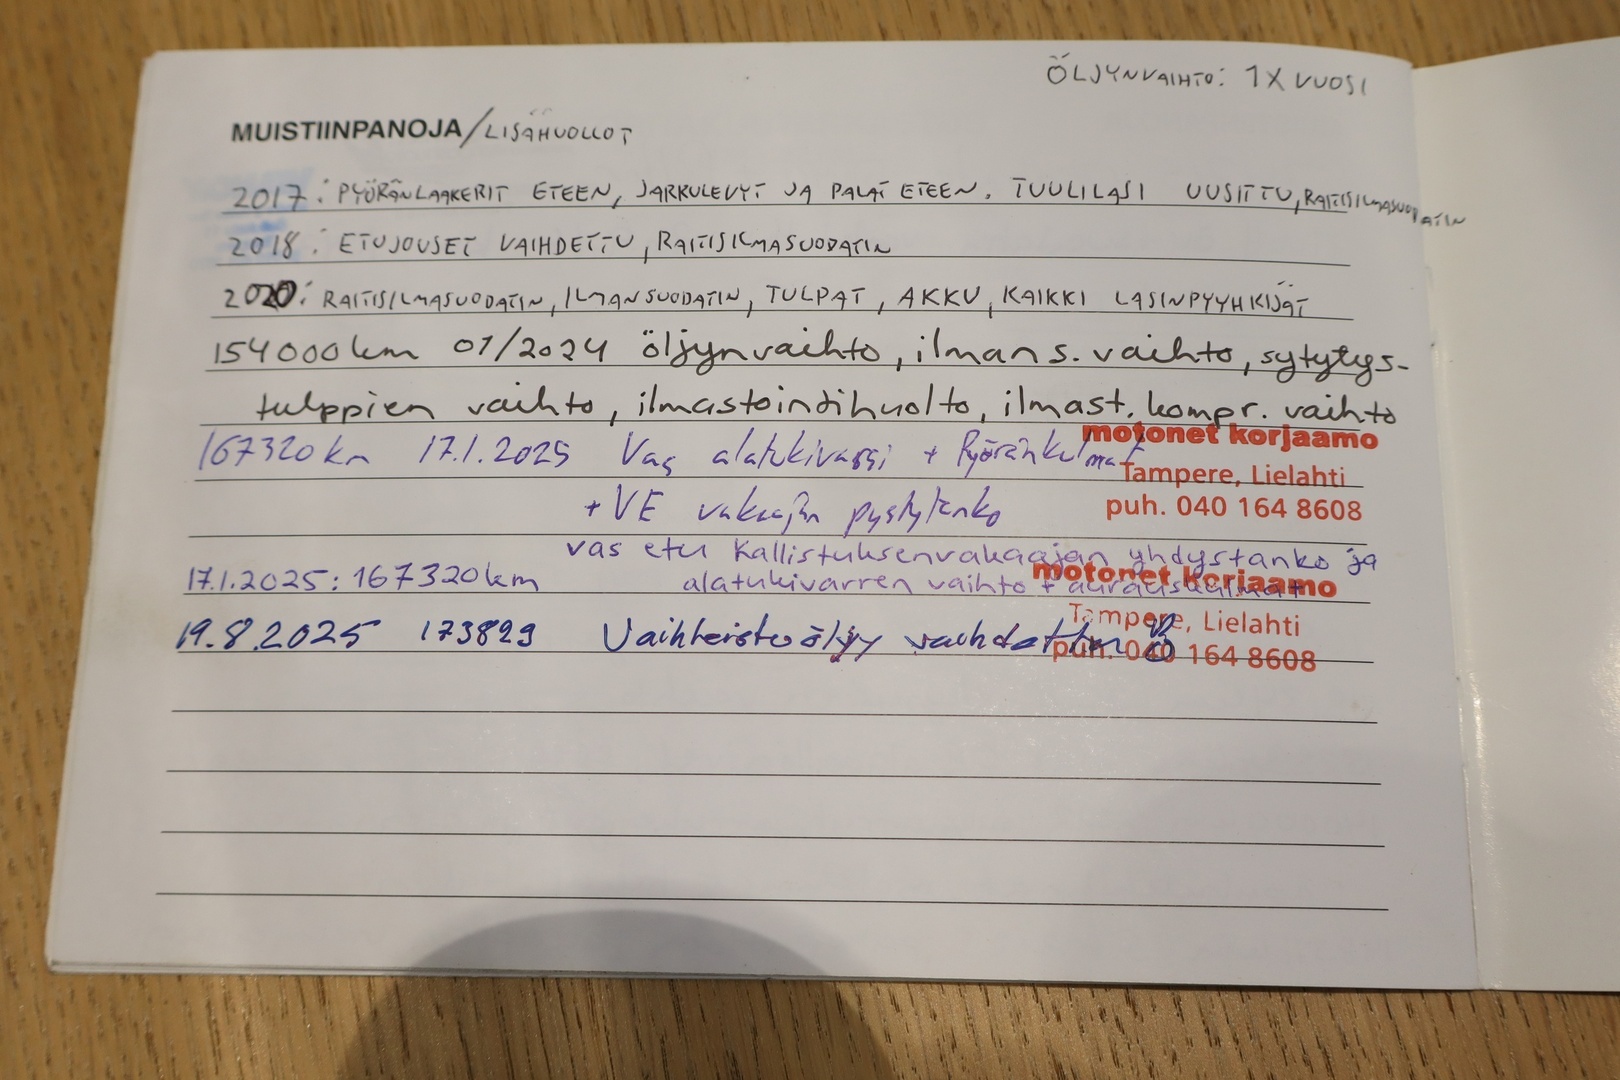 ÖLJYNVAIHTO: 1X VUOSI
MUISTIINPANOJA/LISÄHUOLLOT
2017: PYÖRÄNLAAKERIT ETEEN, JARRULEVYT JA PALAT ETEEN. TUULILASI UUSITTU, RAITISILMASUODATIN
2018: ETUJOUSET VAIHDETTU, RAITISILMASUODATIN
2020: RAITISILMASUODATIN, ILMANSUODATIN, TULPAT, AKKU, KAIKKI LASINPYYHKIJÄT
154000km 01/2024 öljynvaihto, ilmans. vaihto, sytytys-
tulppien vaihto, ilmastointihuolto, ilmast. kompr. vaihto
motonet korjaamo
167320 km 17.1.2025 Vas alatukivarsi + Pyöränkulmat
Tampere, Lielahti
+ VE vakaajan pystytanko
puh. 040 164 8608
vas etu Kallistuksenvakaajan yhdystanko ja
17.1.2025: 167320km alatukivarren vaihto + aurauskulmat
motonet korjaamo
Tampere, Lielahti
19.8.2025 173829 Vaihteistoöljy vaihdettu
puh. 040 164 8608